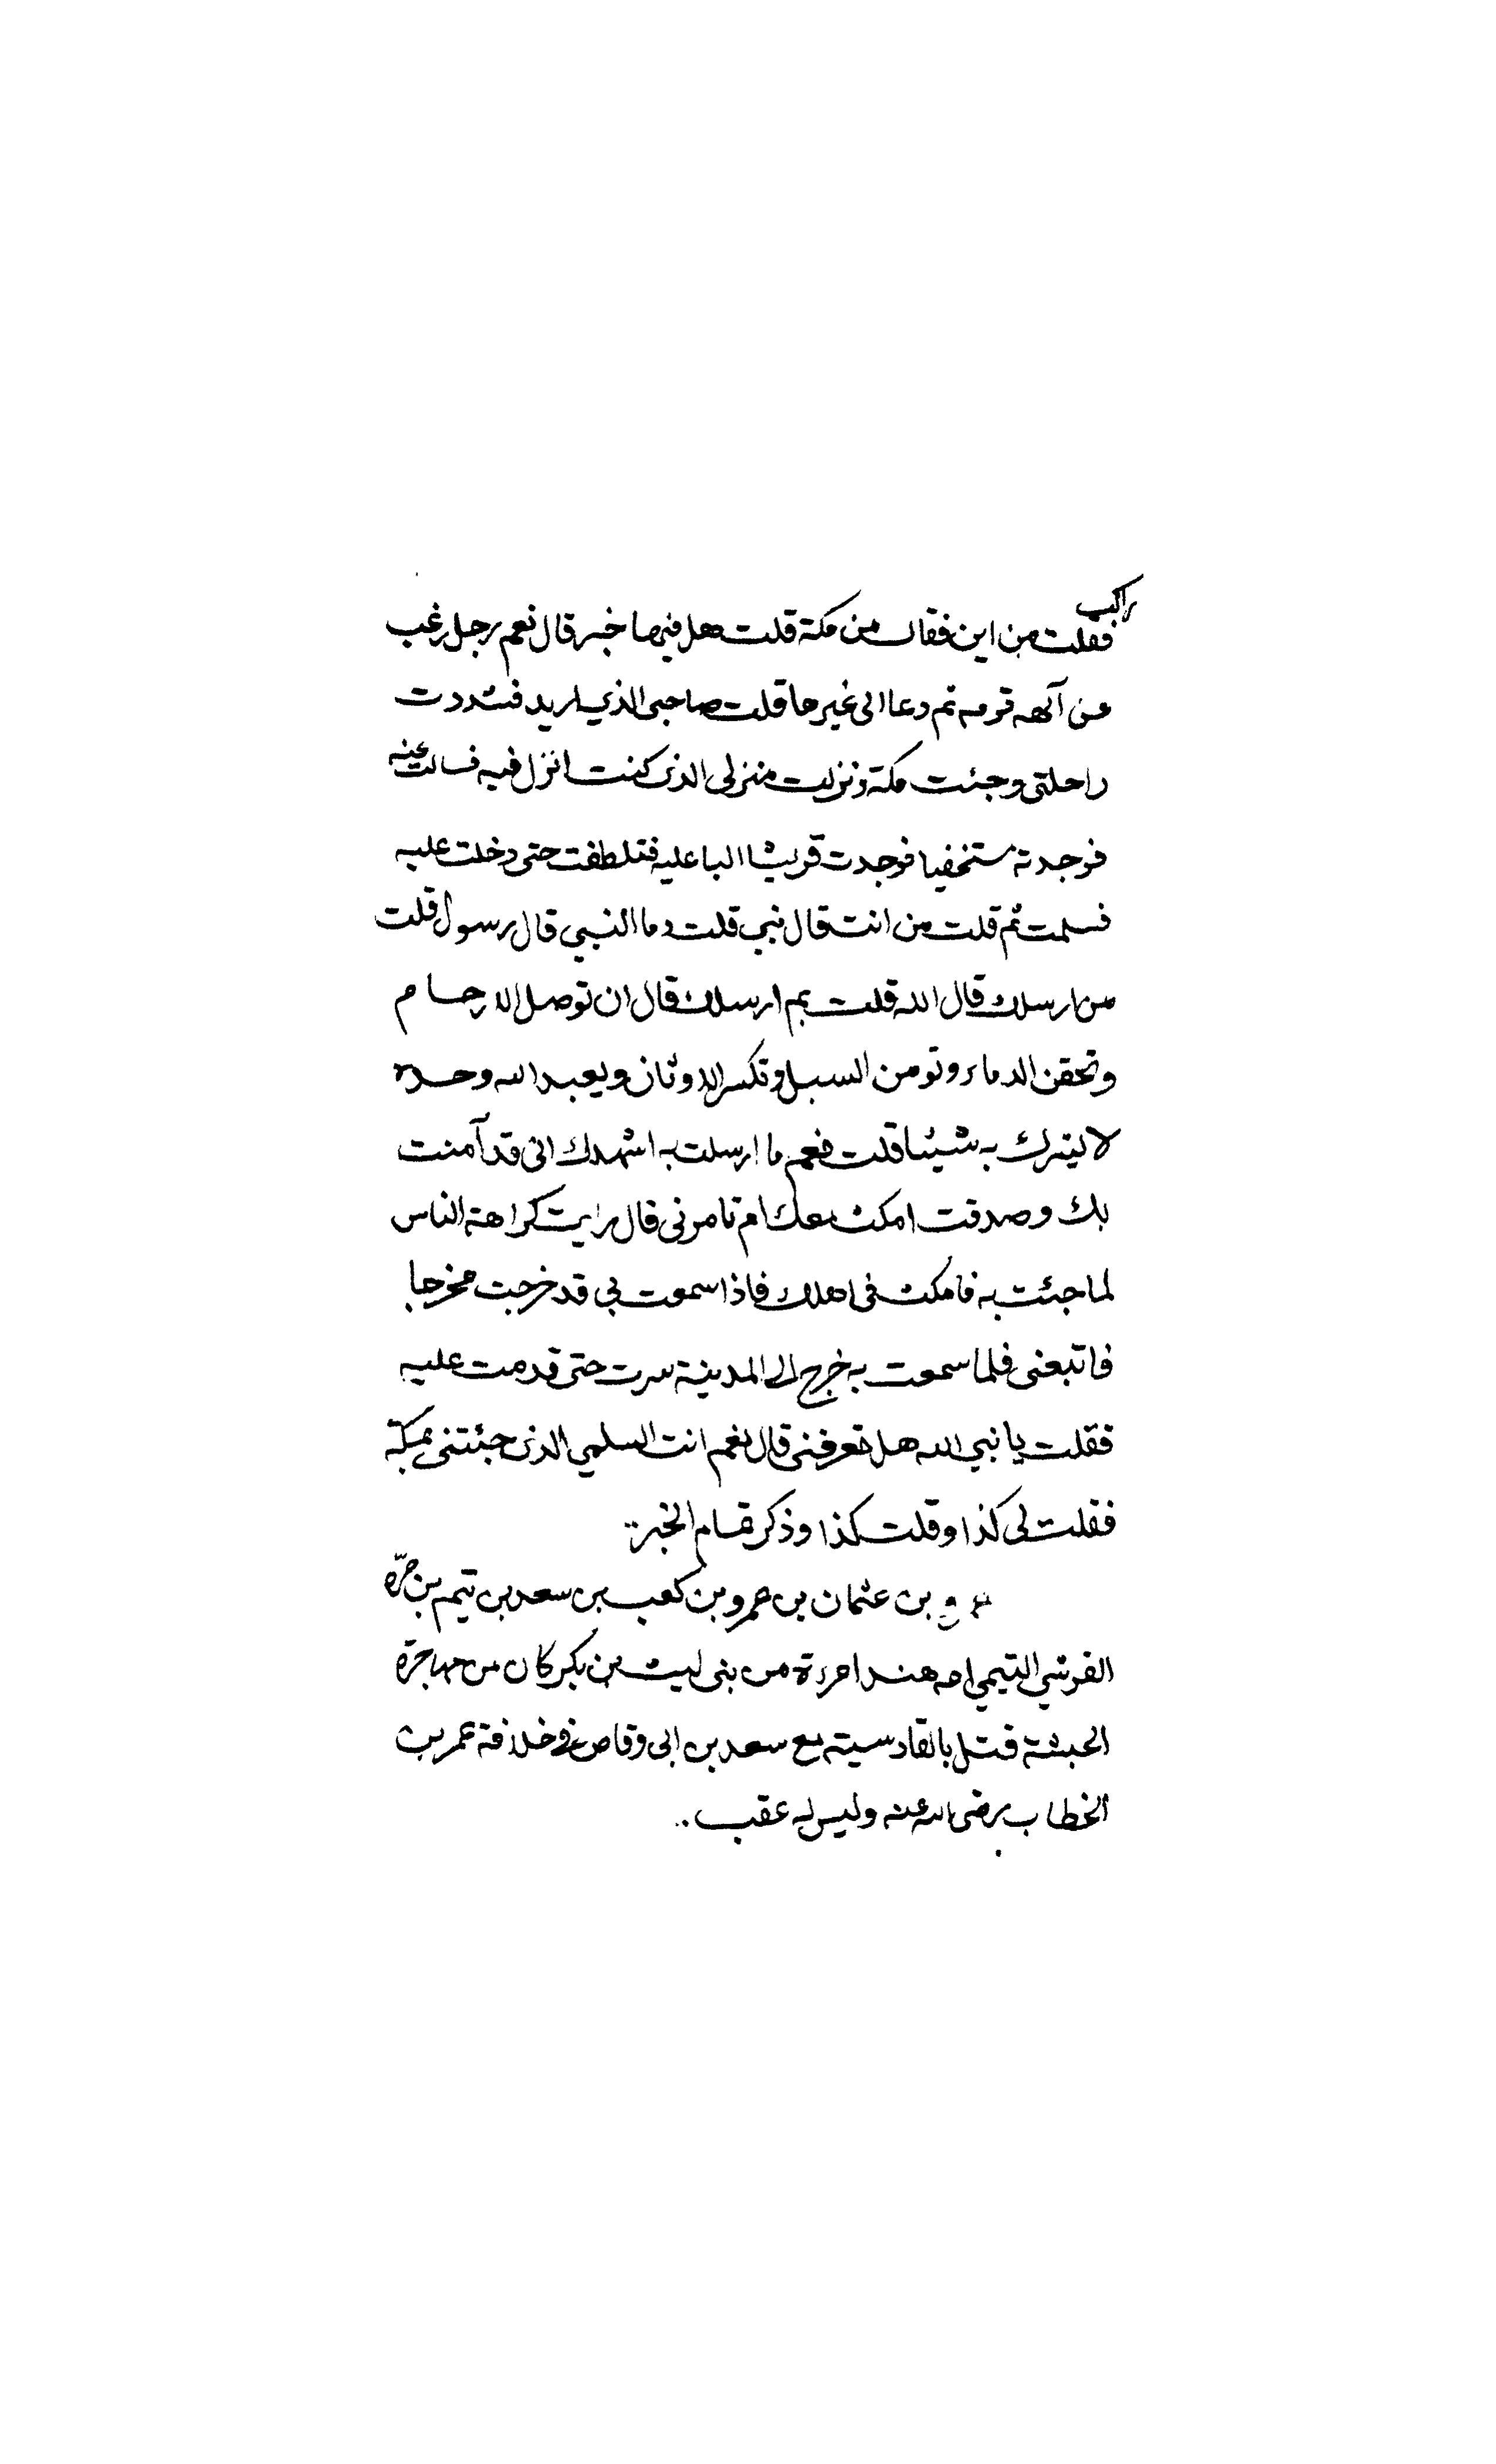 راكب
فقلت من اين فقال من مكة قلت هل فيها خبر قال نعم رجل رغب
عن آلهه قومه ثم دعا الى غيرها قلت صاحبى الذي اريد فشددت
راحلتى وجئت مكة ونزلت منزلى الذى كنت انزل فيه فسالت عنه
فوجدته مستخفيا فوجدت قريشا البا عليه فتلطفت حتى دخلت عليه
فسلمت ثم قلت من انت قال نبي قلت وما النبي قال رسول قلت
من ارسلك قال الله قلت بم ارسلك قال ان توصل الارحام
وتحقن الدماء وتومن السبل وتكسر الاوثان ويعبد الله وحده
لا يشرك به شيئا قلت نعم ما ارسلت به اشهدك انى قد آمنت
بك وصدقت امكث معك ام تامرنى قال رايت كراهة الناس
لما جئت به فامكث فى اهلك فاذا سمعت بى قد خرجت مخرجا
فاتبعنى فلما سمعت به خرج الى المدينة سرت حتى قدمت عليه
فقلت يا نبي الله هل تعرفنى قال نعم انت السلمي الذى جئتنى بمكة
فقلت لى كذا وقلت كذا وذكر تمام الخبر
عمرو بن عثمان بن عمرو بن كعب بن سعد بن تيم بن مرّة
القرشي التيمي امه هند امرءة من بنى ليث بن بكر كان من مهاجرة
الحبشة قتل بالقادسية مع سعد بن ابى وقاص فى خلافة عمر بن
الخطاب رضى الله عنه وليس له عقب